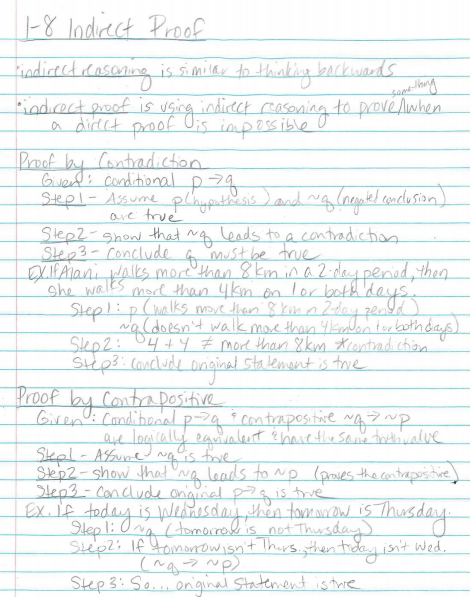 1-8 Indirect Proof
• indirect reasoning is similar to thinking backwards
• indirect proof is using indirect reasoning to prove something when
a direct proof is impossible
Proof by Contradiction
Given: conditional p → q
Step 1 - Assume p (hypothesis) and ~q (negated conclusion)
are true
Step 2 - show that ~q leads to a contradiction
Step 3 - Conclude q must be true
EX. If Alani walks more than 8 km in a 2-day period, then
she walks more than 4 km on 1 or both days.
Step 1: p (walks more than 8 km in 2-day period)
~q (doesn't walk more than 4 km on 1 or both days)
Step 2: 4 + 4 ≠ more than 8 km *contradiction
Step 3: conclude original statement is true
Proof by Contrapositive
Given: Conditional p → q & contrapositive ~q → ~p
are logically equivalent & have the same truth value
Step 1 - Assume ~q is true
Step 2 - show that ~q leads to ~p (proves the contrapositive)
Step 3 - Conclude original p → q is true
Ex. If today is Wednesday, then tomorrow is Thursday.
Step 1: ~q (tomorrow is not Thursday)
Step 2: If tomorrow isn't Thurs., then today isn't Wed.
(~q → ~p)
Step 3: So... original statement is true